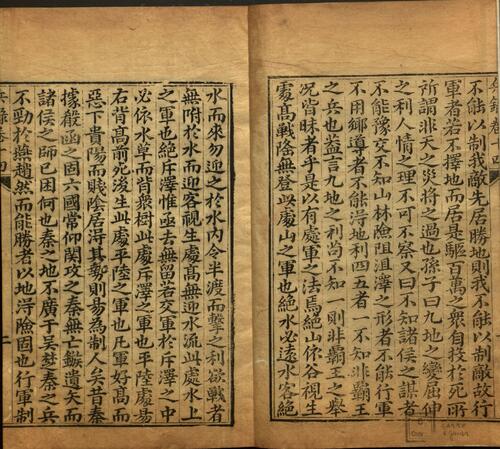 不能以制我敵先居勝地則我不能以制敵故行
軍者若不擇地而居是驅百萬之衆自投於死所
所謂非天之災將之過也孫子曰九地之變屈伸
之利人情之理不可不察又曰不知諸侯之謀者
不能豫交不知山林險阻沮澤之形者不能行軍
不用鄉導者不能淂地利四五者一不知非霸王
之兵也蓋言九地之利茍不知一則非霸王之舉
况皆昧者乎是以有處軍之法焉絶山依谷視生
處髙戰隆無登此處山之軍也絶水必逺水客絶
水而來勿迎之於水内令半渡而擊之利欲戰者
無附於水而迎客視生處髙無迎水流此處水上
之軍也絶斥澤惟亟去無留若交軍於斥澤之中
必依水草而背衆樹此處斥澤之軍也平陸處易
右背髙前死後生此處平陸之軍也凡軍好髙而
惡下貴陽而賤陰居淂其勢則易為制人矣昔秦
據殽函之固六國常仰關攻之秦無亡鏃遺矢而
諸侯之師已困何也秦之地不廣于吴楚秦之兵
不勁於燕趙然而能勝者以地淂險固也行軍制
二